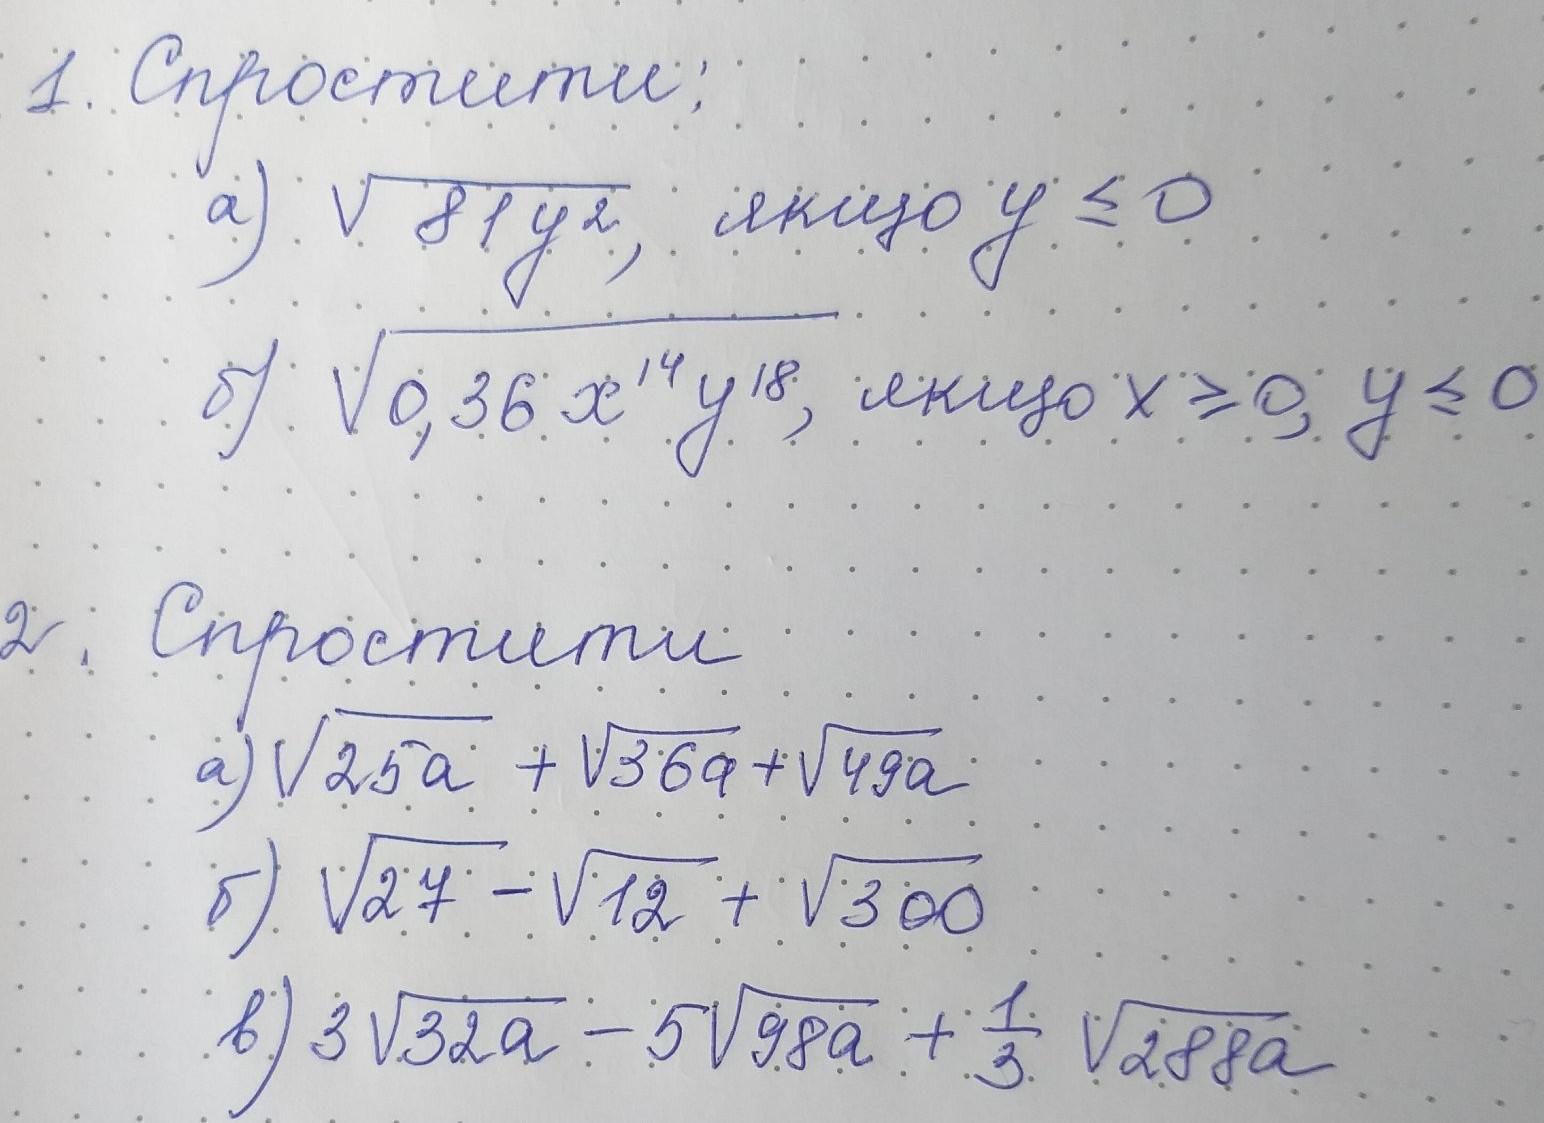 1. Спростити:
а) √81y², якщо y ≤ 0
б) √0,36x¹⁴y¹⁸, якщо x ≥ 0, y ≤ 0
2. Спростити
а) √25a + √36a + √49a
б) √27 - √12 + √300
в) 3√32a - 5√98a + 1/3 √288a